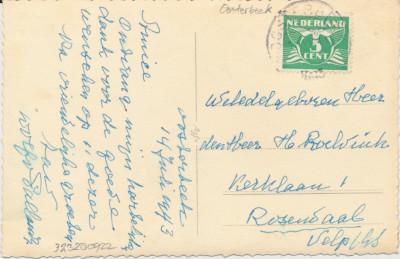 Oosterbeek
NEDERLAND
5
CENT
Oosterbeek
14 Juli 1943
Amice
Ontvang mijn hartelijke
dank voor de goede
wenschen op 11 dezer
Na vriendelijke groeten
Weledelgeboren Heer
den Heer H. Roelvink
Kerklaan 1
Rosendaal
Velp / Gld
323200922